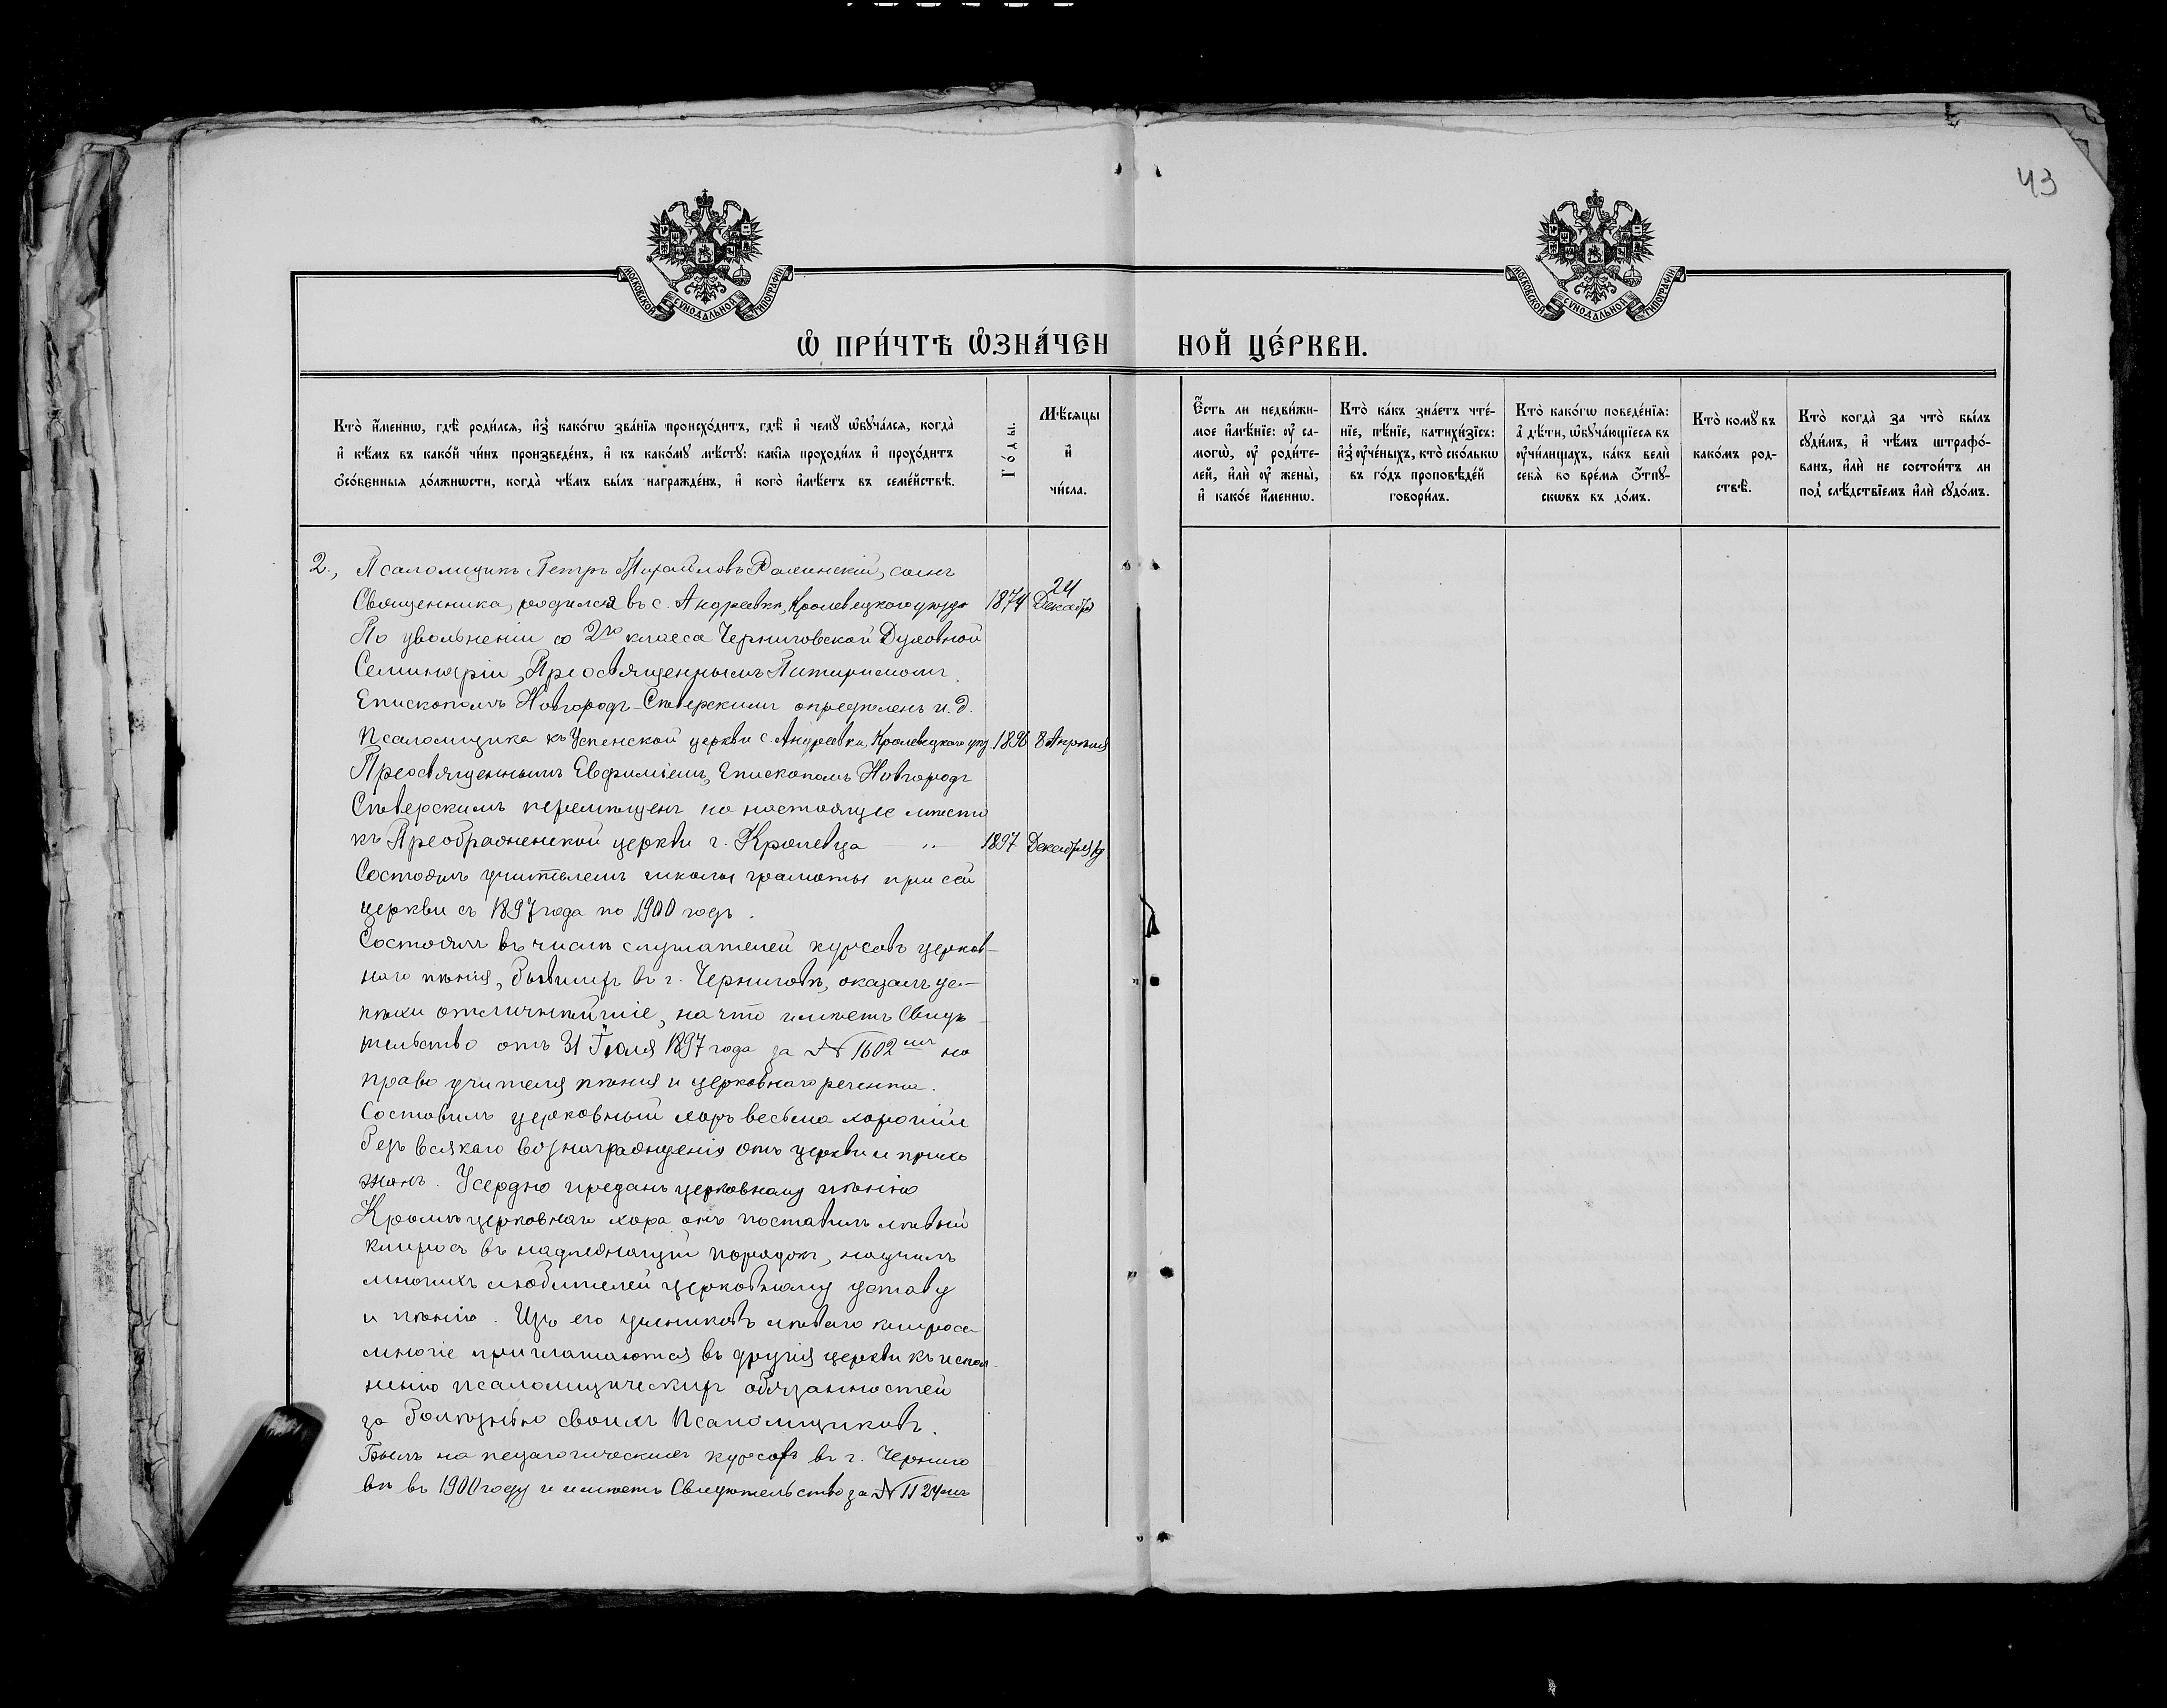 43
МОСКОВСКОЙ СУНОДАЛЬНОЙ ТИПОГРАФІИ
МОСКОВСКОЙ СУНОДАЛЬНОЙ ТИПОГРАФІИ
Ѡ ПРИ́ЧТѢ ѠЗНА́ЧЕН НОЙ ЦЕ́РКВИ.
Кто̀ и҆́менно, гдѣ̀ роди́лся, и҆з̾ како́гѡ зва́нїя происхо́дитъ, гдѣ̀ и҆ чемꙋ̀ ѡ҆бꙋча́лся, когда̀
и҆ кѣ́мъ въ како́й чи́нъ произведе́нъ, и҆ къ како́мꙋ мѣ́стꙋ: какі̑я проходи́лъ и҆ прохо́дитъ
ѻ҆со́бенныя до́лжности, когда̀ чѣ́мъ бы́лъ награжде́нъ, и҆ кого̀ и҆мѣ́етъ въ семе́йствѣ.
Го́ды.
Мѣ́сяцы
и҆
чи́сла.
Є҆́сть ли недви́жи-
мое и҆мѣ́нїе: ᲂу҆ са-
могѡ̀, ᲂу҆ роди́те-
лей, и҆лѝ ᲂу҆ жены̀,
и҆ како́е и҆́менно.
Кто̀ ка́къ зна́етъ чте́-
нїе, пѣ́нїе, катихи́зїсъ:
и҆з̾ ᲂу҆че́ныхъ, кто̀ ско́лькѡ
въ го́дъ проповѣ́дей
говори́лъ.
Кто̀ како́гѡ поведе́нїя:
а҆ дѣ́ти, ѡ҆бꙋча́ющїеся въ
ᲂу҆чи́лищахъ, ка́къ велѝ
себя̀ во вре́мя ѿпꙋ-
сковъ въ до́мъ.
Кто̀ комꙋ̀ въ
како́мъ род-
ствѣ̀.
Кто̀ когда̀ за что̀ бы́лъ
сꙋди́мъ, и҆ чѣ́мъ штрафо́-
ванъ, и҆лѝ не состои́тъ ли
под̾ слѣ́дствїемъ и҆лѝ сꙋдо́мъ.
2., Псаломщикъ Петръ Михайловъ сынъ
Священника, родился въ с. Андреевкѣ, Кролевецкого уѣзда 1874 24 Декабря
По увольненіи со 2го класса Черниговской Духовной
Семинаріи, Преосвященнымъ Питиримомъ
Епископомъ Новгородъ-Сѣверскимъ опредѣленъ и. д.
Псаломщика къ Успенской церкви с. Андреевки, Кролевецкаго уѣз. 1896 8 Апрѣля
Преосвященнымъ Евфиміемъ, Епископомъ Новгородъ
Сѣверскимъ перемѣщенъ на настоящее мѣсто
къ Преображенской церкви г. Кролевца — „ — 1897 Декабря
Состоялъ учителемъ школы грамоты при сей
церкви съ 1897 года по 1900 годъ.
Состоялъ въ числѣ слушателей курсовъ церков-
наго пѣнія, бывшихъ въ г. Черниговѣ, оказалъ ус-
пѣхи отличнѣйшіе, на что имѣетъ Свидѣ-
тельство отъ 31 Іюля 1897 года за № 1602мъ на
право учителя пѣнія и церковнаго регента.
Составилъ церковный хоръ весьма хорошій
безъ всякаго вознагражденія отъ церкви и прихо
жанъ. Усердно преданъ церковному пѣнію
Кромѣ церковнаго хора онъ поставилъ лѣвый
клиросъ въ надлежащій порядокъ, научилъ
многихъ любителей церковному уставу
и пѣнію. Изъ его учениковъ лѣваго клироса
многіе приглашаются въ другія церкви къ испол-
нѣнію псаломщическихъ обязанностей
за болѣзнью своихъ Псаломщиковъ.
Былъ на педагогическихъ курсахъ въ г. Черниго
вѣ въ 1900 году и имѣетъ Свидѣтельство за № 1124мъ